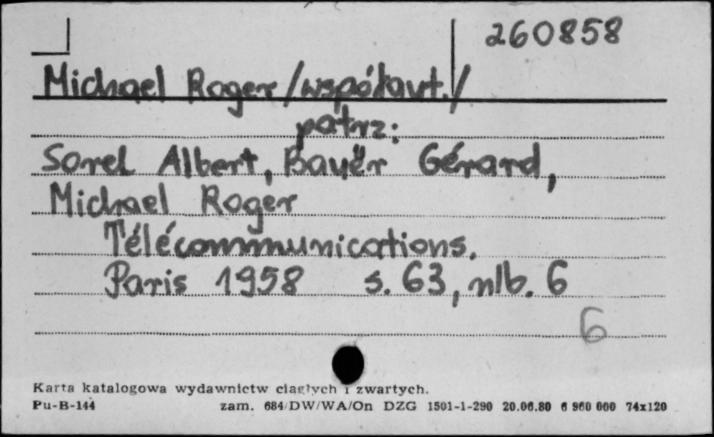 260858
Michael Roger /współaut./
patrz:
Sorel Albert, Bauër Gérard,
Michael Roger
Télécommunications.
Paris 1958 s. 63, nlb. 6
6
Karta katalogowa wydawnictw ciągłych i zwartych.
Pu-B-144 zam. 684/DW/WA/On DZG 1501-1-290 20.06.80 6 960 000 74x120